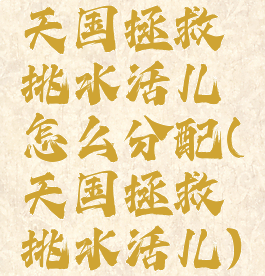 天国拯救
挑水活儿
怎么分配(
天国拯救
挑水活儿)